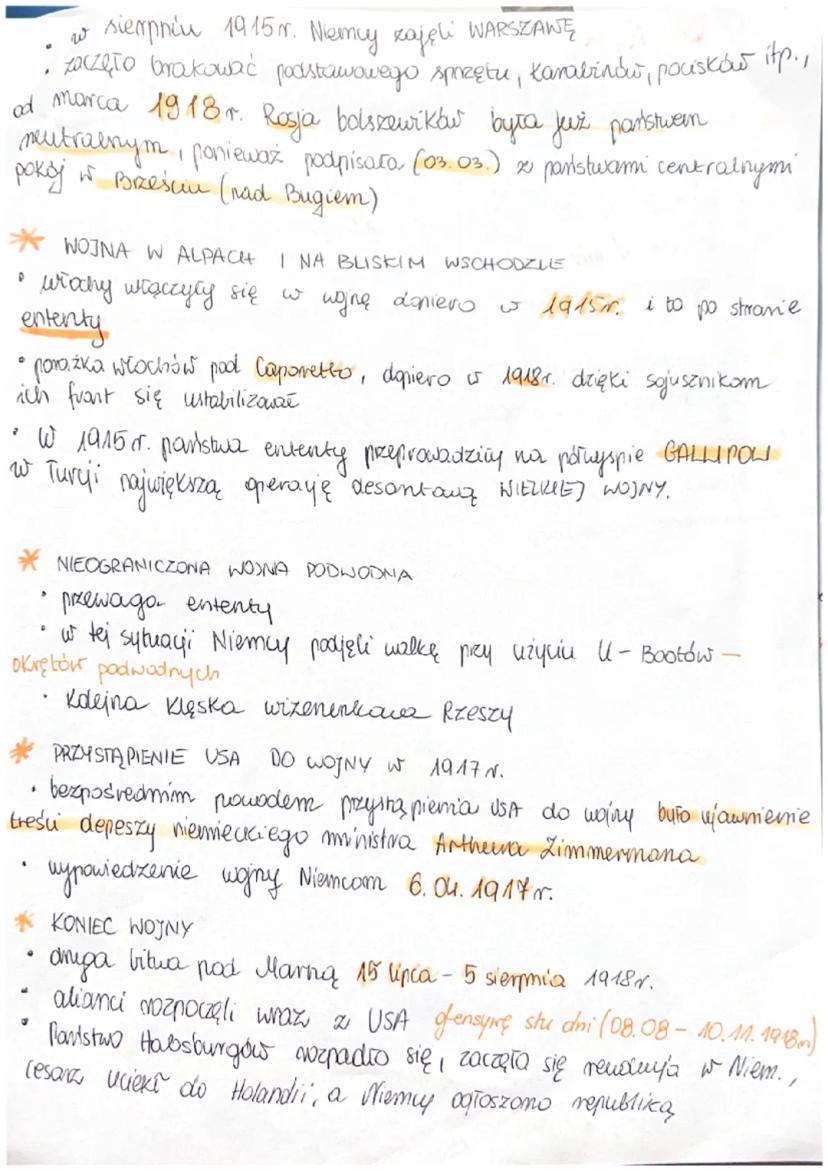 • w sierpniu 1915 r. Niemcy zajęli WARSZAWĘ
• zaczęło brakować podstawowego sprzętu, karabinów, pocisków itp.,
od marca 1918 r. Rosja bolszewików była już państwem
neutralnym, ponieważ podpisała (03.03.) z państwami centralnymi
pokój w Brześciu (nad Bugiem)
* WOJNA W ALPACH I NA BLISKIM WSCHODZIE
• włochy włączyły się w wojnę dopiero w 1915r. i to po stronie
ententy
• porażka włochów pod Caporetto, dopiero w 1918r. dzięki sojusznikom
ich front się ustabilizował
• W 1915 r. państwa ententy przeprowadziły na półwyspie GALLIPOLI
w Turcji największą operację desantową WIELKIEJ WOJNY.
* NIEOGRANICZONA WOJNA PODWODNA
• przewaga ententy
• w tej sytuacji Niemcy podjęli walkę przy użyciu U-Bootów –
okrętów podwodnych
• Kolejna klęska wizerunkowa Rzeszy
* PRZYSTĄPIENIE USA DO WOJNY W 1917 r.
• bezpośrednim powodem przystąpienia USA do wojny było ujawnienie
treści depeszy niemieckiego ministra Arthura Zimmermana
• wypowiedzenie wojny Niemcom 6.04.1917 r.
* KONIEC WOJNY
• druga bitwa pod Marną 15 lipca - 5 sierpnia 1918r.
• alianci rozpoczęli wraz z USA ofensywę stu dni (08.08 - 10.11.1918r)
• Państwo Habsburgów rozpadło się, zaczęła się rewolucja w Niem.,
cesarz uciekł do Holandii, a Niemcy ogłoszono republiką